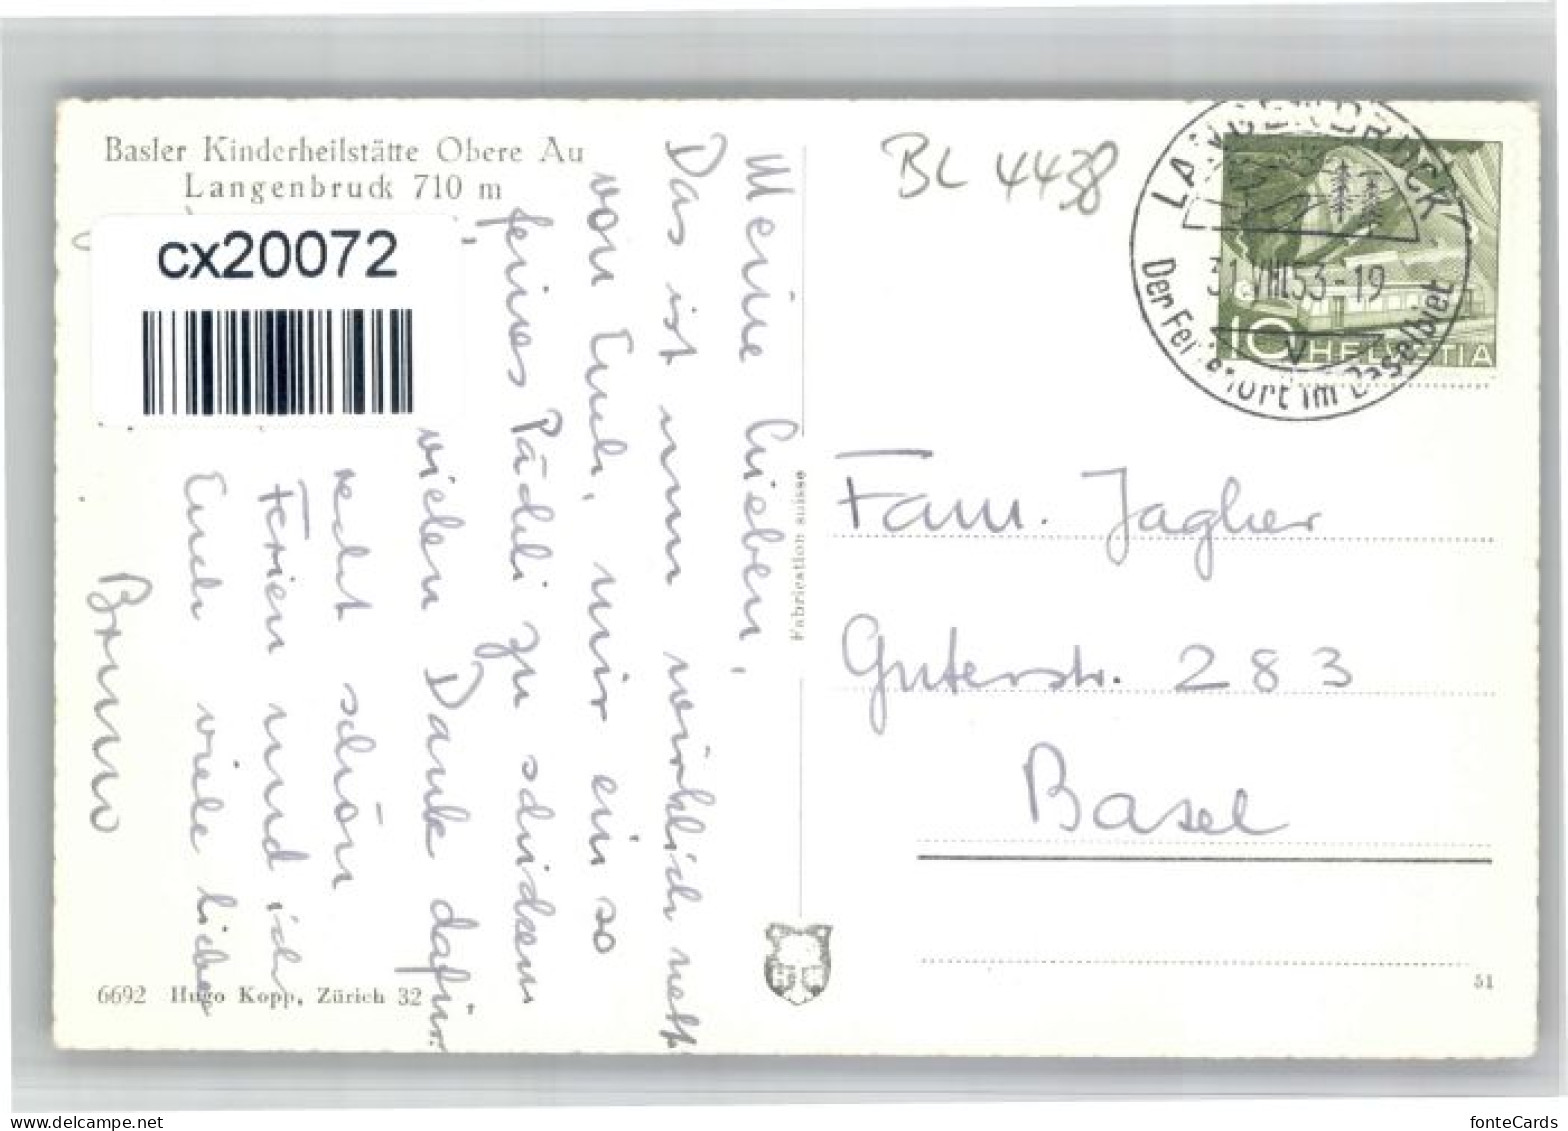 Basler Kinderheilstätte Obere Au
Langenbruck 710 m
cx20072
Meine Lieben,
Das ist nun wirklich nett
von Euch, mir ein so
feines Päckli zu schicken
vielen Dank dafür.
recht schön
Ferien und ich
Euch viele liebe
Bruno
6692 Hugo Kopp, Zürich 32
Fabrication suisse
BL 4438
LANGENBRUCK
31.VIII.53-19
Der Ferienort im Baselbiet
10 HELVETIA
Fam. Jagher
Güterstr. 283
Basel
51
delcampe.net
fonteCards